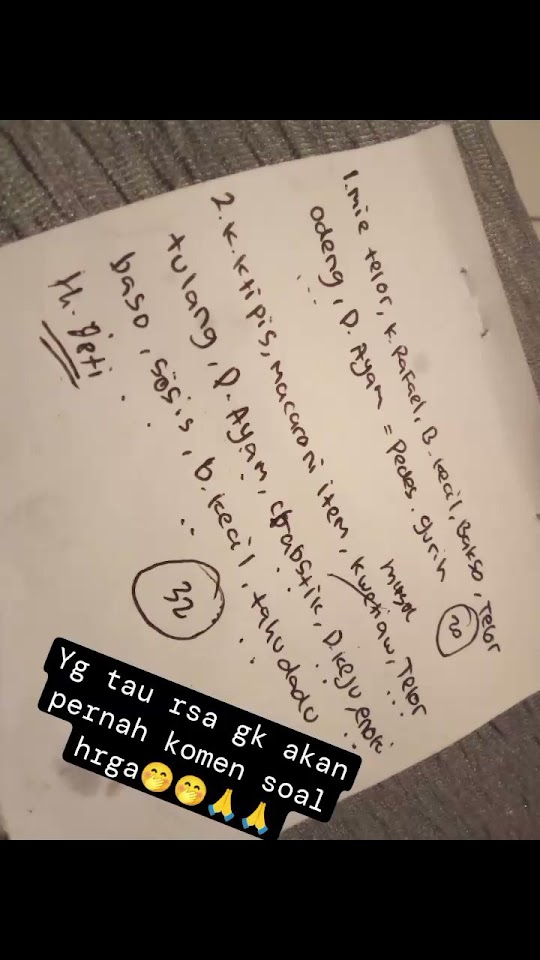 1. mie telor, K. Rafael, B. kecil, Bakso, Telor
odeng, D. Ayam = Pedes. gurih 20
2. K. Ktipis, macaroni item, kwetiaw, Telor
tulang, D. Ayam, crabstik, D. keju, enoki
baso, sosis, b. kecil, tahu dadu
H. Jeti
32
Yg tau rsa gk akan
pernah komen soal
hrga🤭🤭🙏🙏